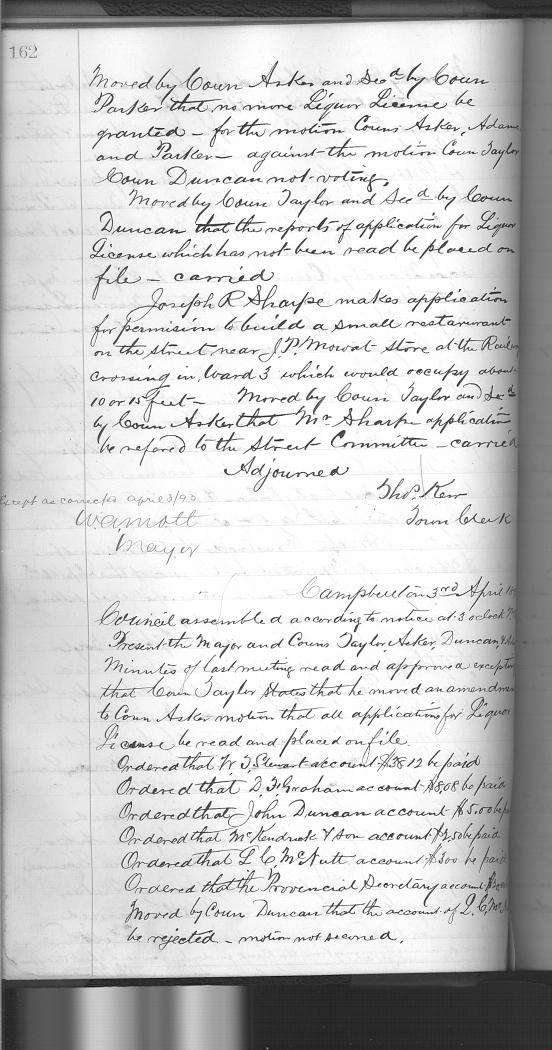 162
Moved by Coun Asker and Secd by Coun
Parker that no more Liquor License be
granted – for the motion Couns Asker, Adams
and Parker – against the motion Coun Taylor
Coun Duncan not voting.
Moved by Coun Taylor and Secd by Coun
Duncan that the reports of application for Liquor
License which has not been read be placed on
file – carried
Joseph R Sharpe makes application
for permision to build a small restaurant
on the street near J.P. Mowat store at the Railway
crossing in Ward 3 which would occupy about
10 or 15 feet – Moved by Coun Taylor and Secd
by Coun Asker that Mr Sharpe application
be refered to the Street Committe – carried
Adjourned
Except as corrected april 3/93
Thos. Kerr
W.A. Mott
Town Clerk
Mayor
Campbellton 3rd April
Council assembled according to notice at 3 oclock
Present the Mayor and Couns Taylor, Asker, Duncan,
Minutes of last meeting read and approved except
that Coun Taylor states that he moved an amendment
to Coun Asker motion that all applications for Liquor
License be read and placed on file.
Ordered that W T. Stewart account $38.12 be paid
Ordered that D. F. Graham account $8.08 be paid
Ordered that John Duncan account $5.00 be
Ordered that McKendrick & Son account $2.50 be paid
Ordered that L C. McNutt account $3.00 be paid
Ordered that the Provincial Secretary account
Moved by Coun Duncan that the account of L. C. Mc
be rejected – motion not seconed.